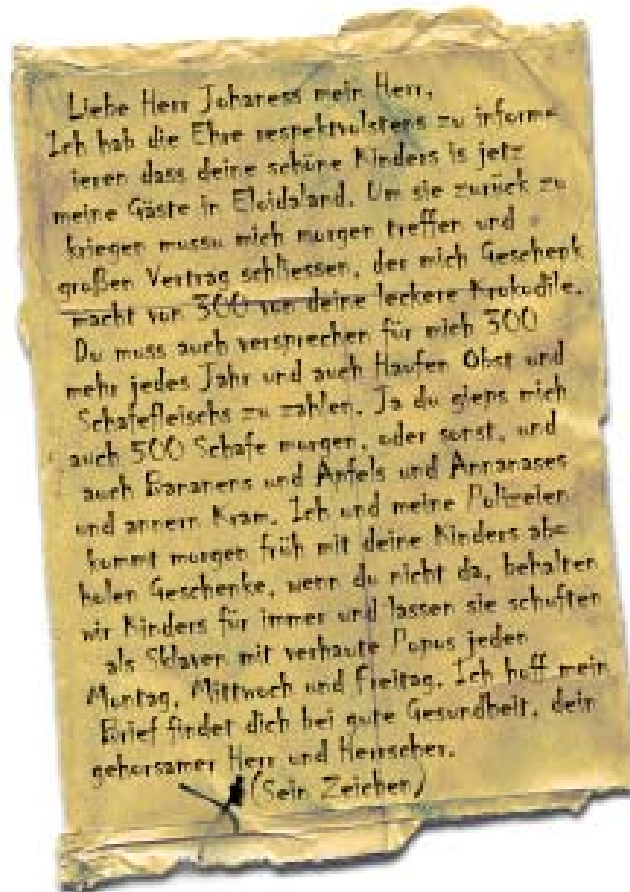 Liebe Herr Johaness mein Herr,
Ich hab die Ehre respektvolstens zu informe=
ieren dass deine schöne Kinders is jetz
meine Gäste in Eloidaland. Um sie zurück zu
kriegen mussu mich morgen treffen und
großen Vertrag schliessen, der mich Geschenk
macht von 300 von deine leckere Krokodile.
Du muss auch versprechen für mich 300
mehr jedes Jahr und auch Haufen Obst und
Schafefleischs zu zahlen. Ja du gieps mich
auch 500 Schafe morgen, oder sonst, und
auch Bananens und Äpfels und Annanases
und annern Kram. Ich und meine Polizeien
kommt morgen früh mit deine Kinders ab=
holen Geschenke, wenn du nicht da, behalten
wir Kinders für immer und lassen sie schuften
als Sklaven mit verhaute Popos jeden
Montag, Mittwoch und Freitag. Ich hoff mein
Brief findet dich bei gute Gesundheit, dein
gehorsamer Herr und Herrscher.
(Sein Zeichen)